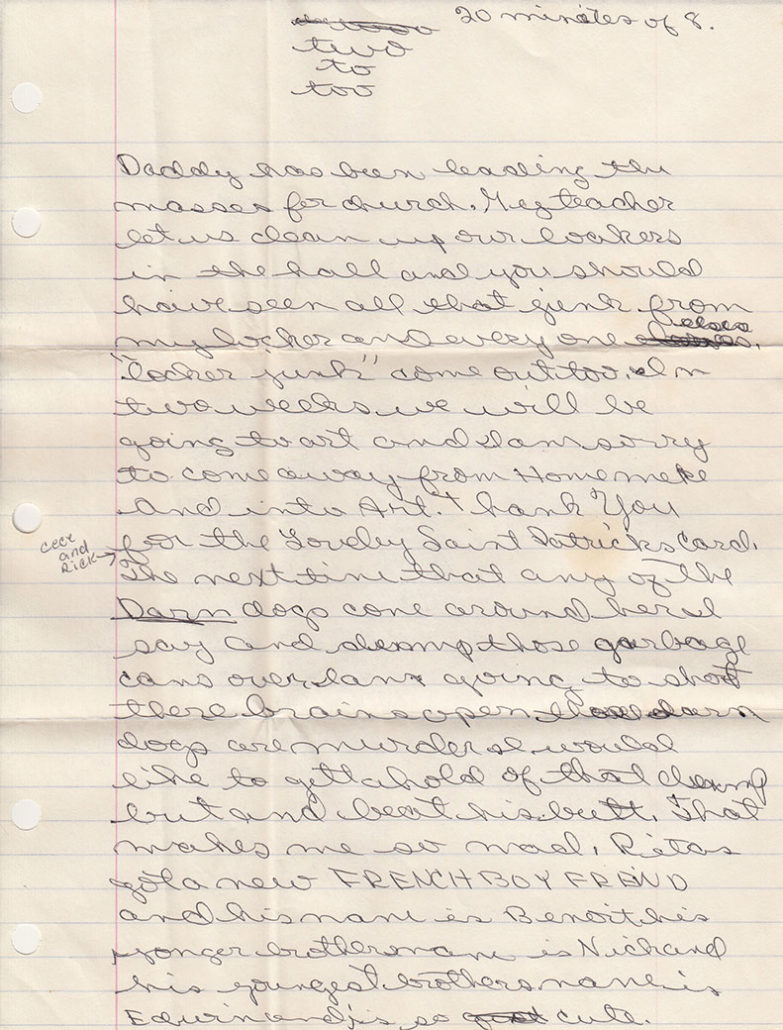 20 minutes of 8.
two
to
too
Daddy has been leading the
masses for church. My teacher
let us clean up our lookers
in the hall and you should
have seen all that junk from
my locker and every one elses
"locker junk" come out too. In
two weeks we will be
going to art and I am sorry
to come away from Homemake
and into Art. Thank You
for the Lovley Saint Patricks Card.
cece
and
Rick →
The next time that any of the
Darn dogs come around here I
say and dump those garbage
cans over I am going to shot
there brains open those darn
dogs are murder I would
like to gettahold of that dump
butt and beat his butt. That
makes me so mad. Ritas
got a new FRENCH BOY FREIND
and his name is Benoit his
yonger brothers name is Nick and
his youngest brothers name is
Edwin and is so cute.